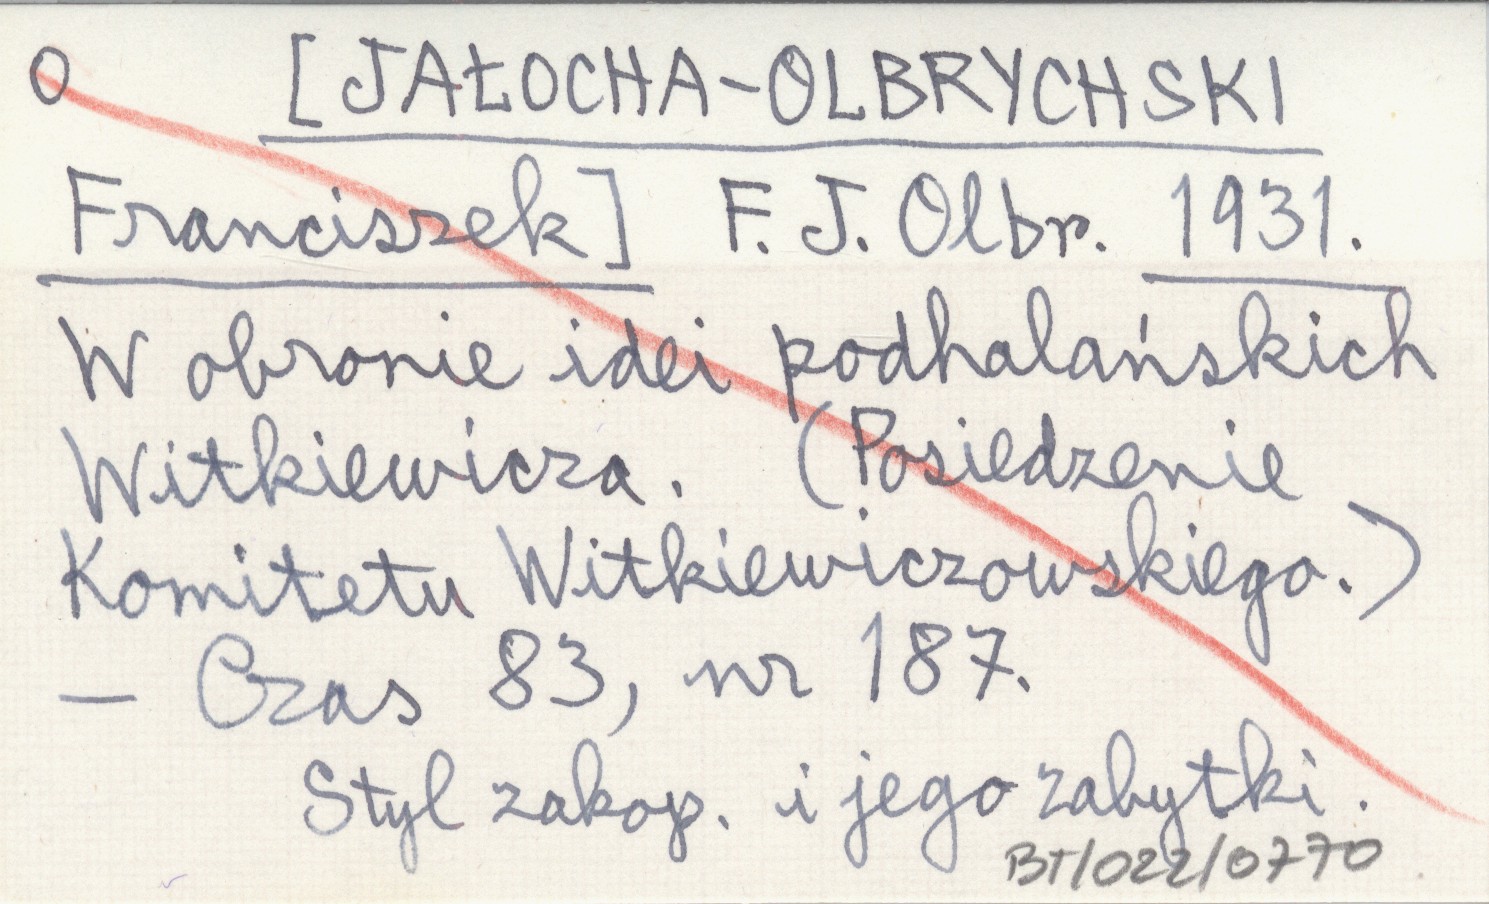 O [JAŁOCHA-OLBRYCHSKI
Franciszek] F. J. Olbr. 1931.
W obronie idei podhalańskich
Witkiewicza. (Posiedzenie
Komitetu Witkiewiczowskiego.)
— Czas 83, nr 187.
Styl zakop. i jego zabytki.
BT/022/0770